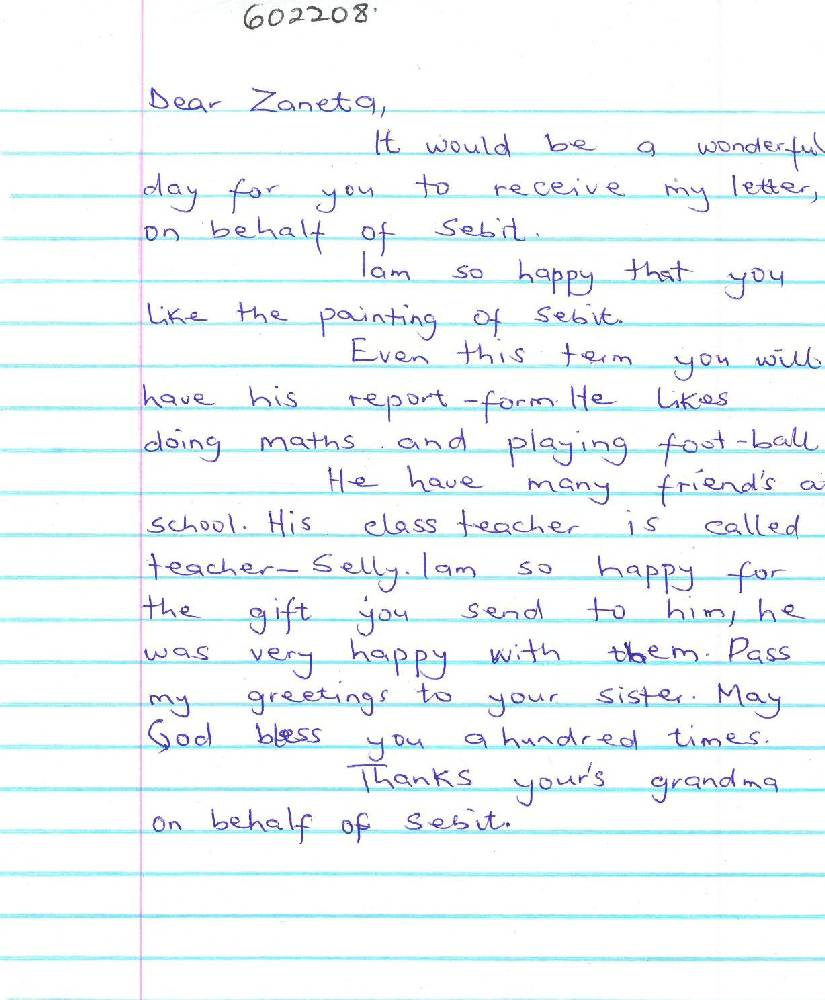 602208.
Dear Zaneta,
It would be a wonderful
day for you to receive my letter,
on behalf of Sebit.
Iam so happy that you
like the painting of Sebit.
Even this term you will
have his report-form. He likes
doing maths and playing foot-ball
He have many friend's a
school. His class teacher is called
teacher- Selly. Iam so happy for
the gift you send to him, he
was very happy with them. Pass
my greetings to your sister. May
God bless you a hundred times.
Thanks your's grandma
on behalf of Sebit.